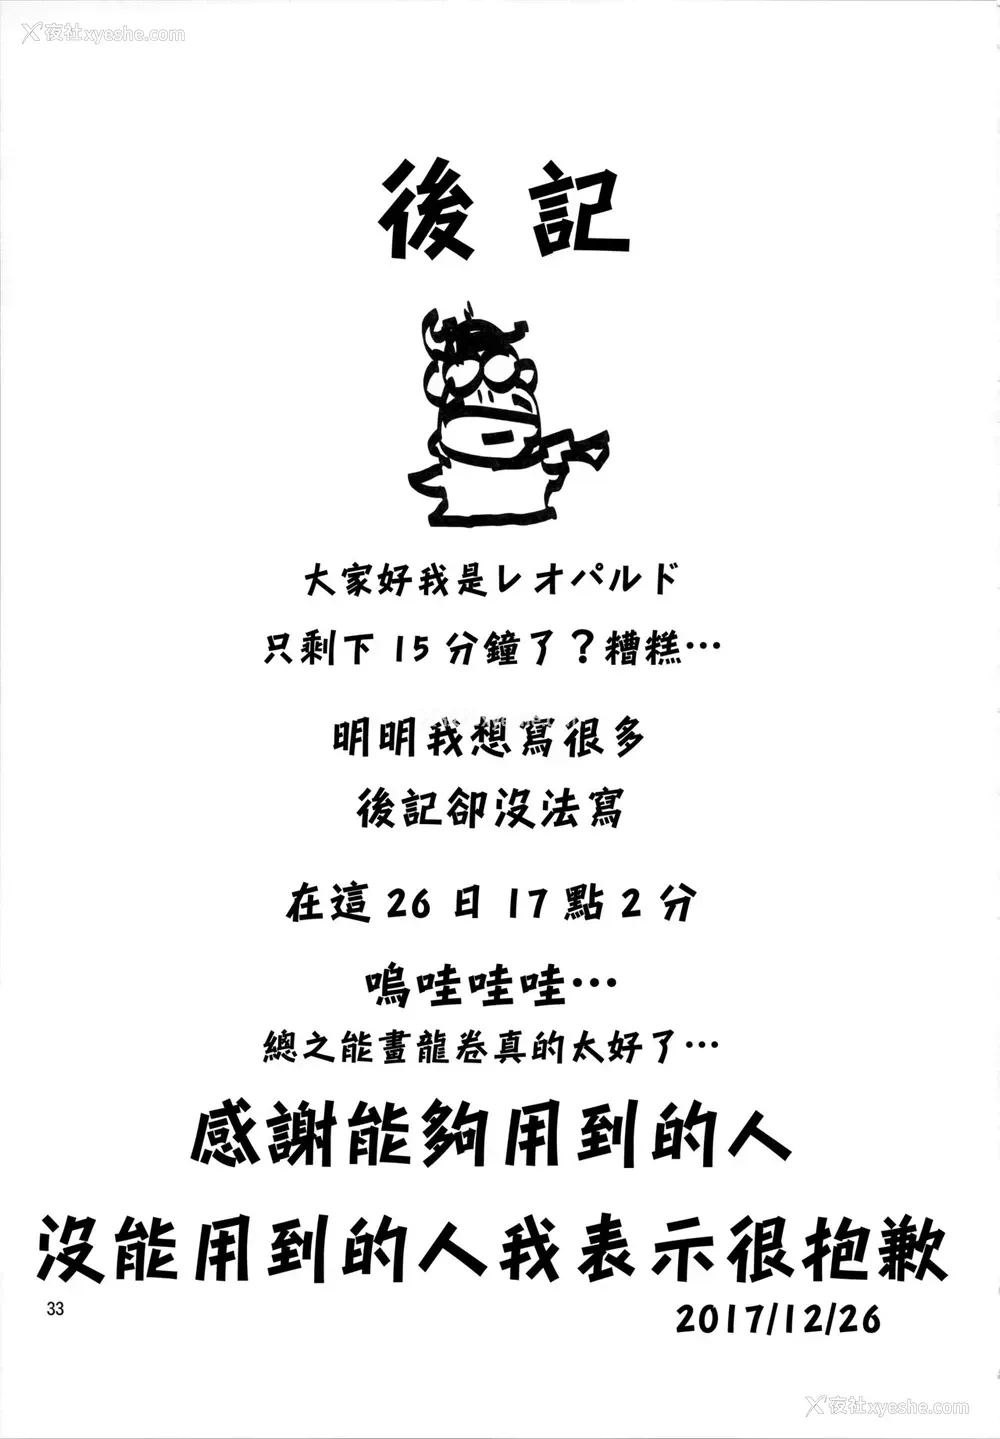 夜社xyeshe.com
後記
大家好我是レオパルド
只剩下15分鐘了？糟糕…
明明我想寫很多
後記卻沒法寫
在這26日17點2分
嗚哇哇哇…
總之能畫龍卷真的太好了…
感謝能夠用到的人
沒能用到的人我表示很抱歉
33
2017/12/26
夜社xyeshe.com